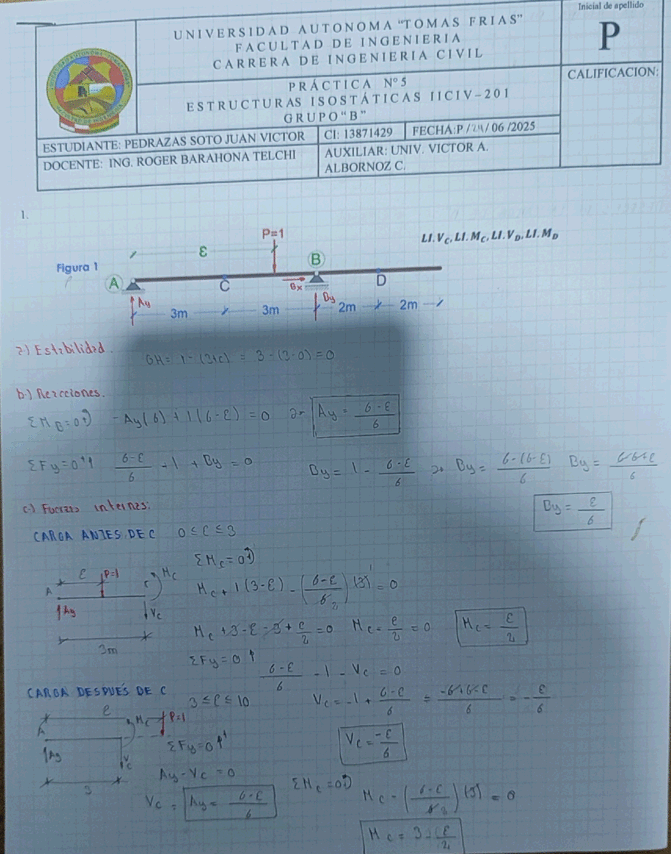 Inicial de apellido
UNIVERSIDAD AUTONOMA "TOMAS FRIAS"
FACULTAD DE INGENIERIA
CARRERA DE INGENIERIA CIVIL
P
PRÁCTICA Nº5
ESTRUCTURAS ISOSTÁTICAS IICIV-201
GRUPO"B"
CALIFICACION:
ESTUDIANTE: PEDRAZAS SOTO JUAN VICTOR
CI: 13871429
FECHA:P/24/06/2025
DOCENTE: ING. ROGER BARAHONA TELCHI
AUXILIAR: UNIV. VICTOR A. ALBORNOZ C.
1.
P=1
LI.V_C, LI.M_C, LI.V_D, LI.M_D
ε
B
Figura 1
A
C
Bx
D
Ay
By
3m 3m 2m 2m
a) Estabilidad
= 3-(3+0)=0
b) Reacciones.
ΣM_B=0 -Ay(6)+1(6-ε)=0 Ay = (6-ε)/6
ΣFy=0 (6-ε)/6 -1 + By = 0 By = 1 - (6-ε)/6 By = (6-(6-ε))/6 By = (6-6+ε)/6
By = ε/6
c) Fuerzas internas:
CARGA ANTES DE C 0≤ε≤3
ΣM_C=0
ε P=1 M_C
A
Ay V_C
3m
M_C + 1(3-ε) - ((6-ε)/6)(3) = 0
M_C + 3 - ε - 3 + ε/2 = 0 M_C - ε/2 = 0 M_C = ε/2
ΣFy=0
(6-ε)/6 - 1 - V_C = 0
V_C = -1 + (6-ε)/6 = (-6+6-ε)/6 = -ε/6
V_C = -ε/6
CARGA DESPUÉS DE C
3≤ε≤10
ε M_C P=1
A
Ay V_C
3
ΣFy=0
Ay-V_C=0
V_C = Ay = (6-ε)/6
ΣM_C=0
M_C - ((6-ε)/6)(3) = 0